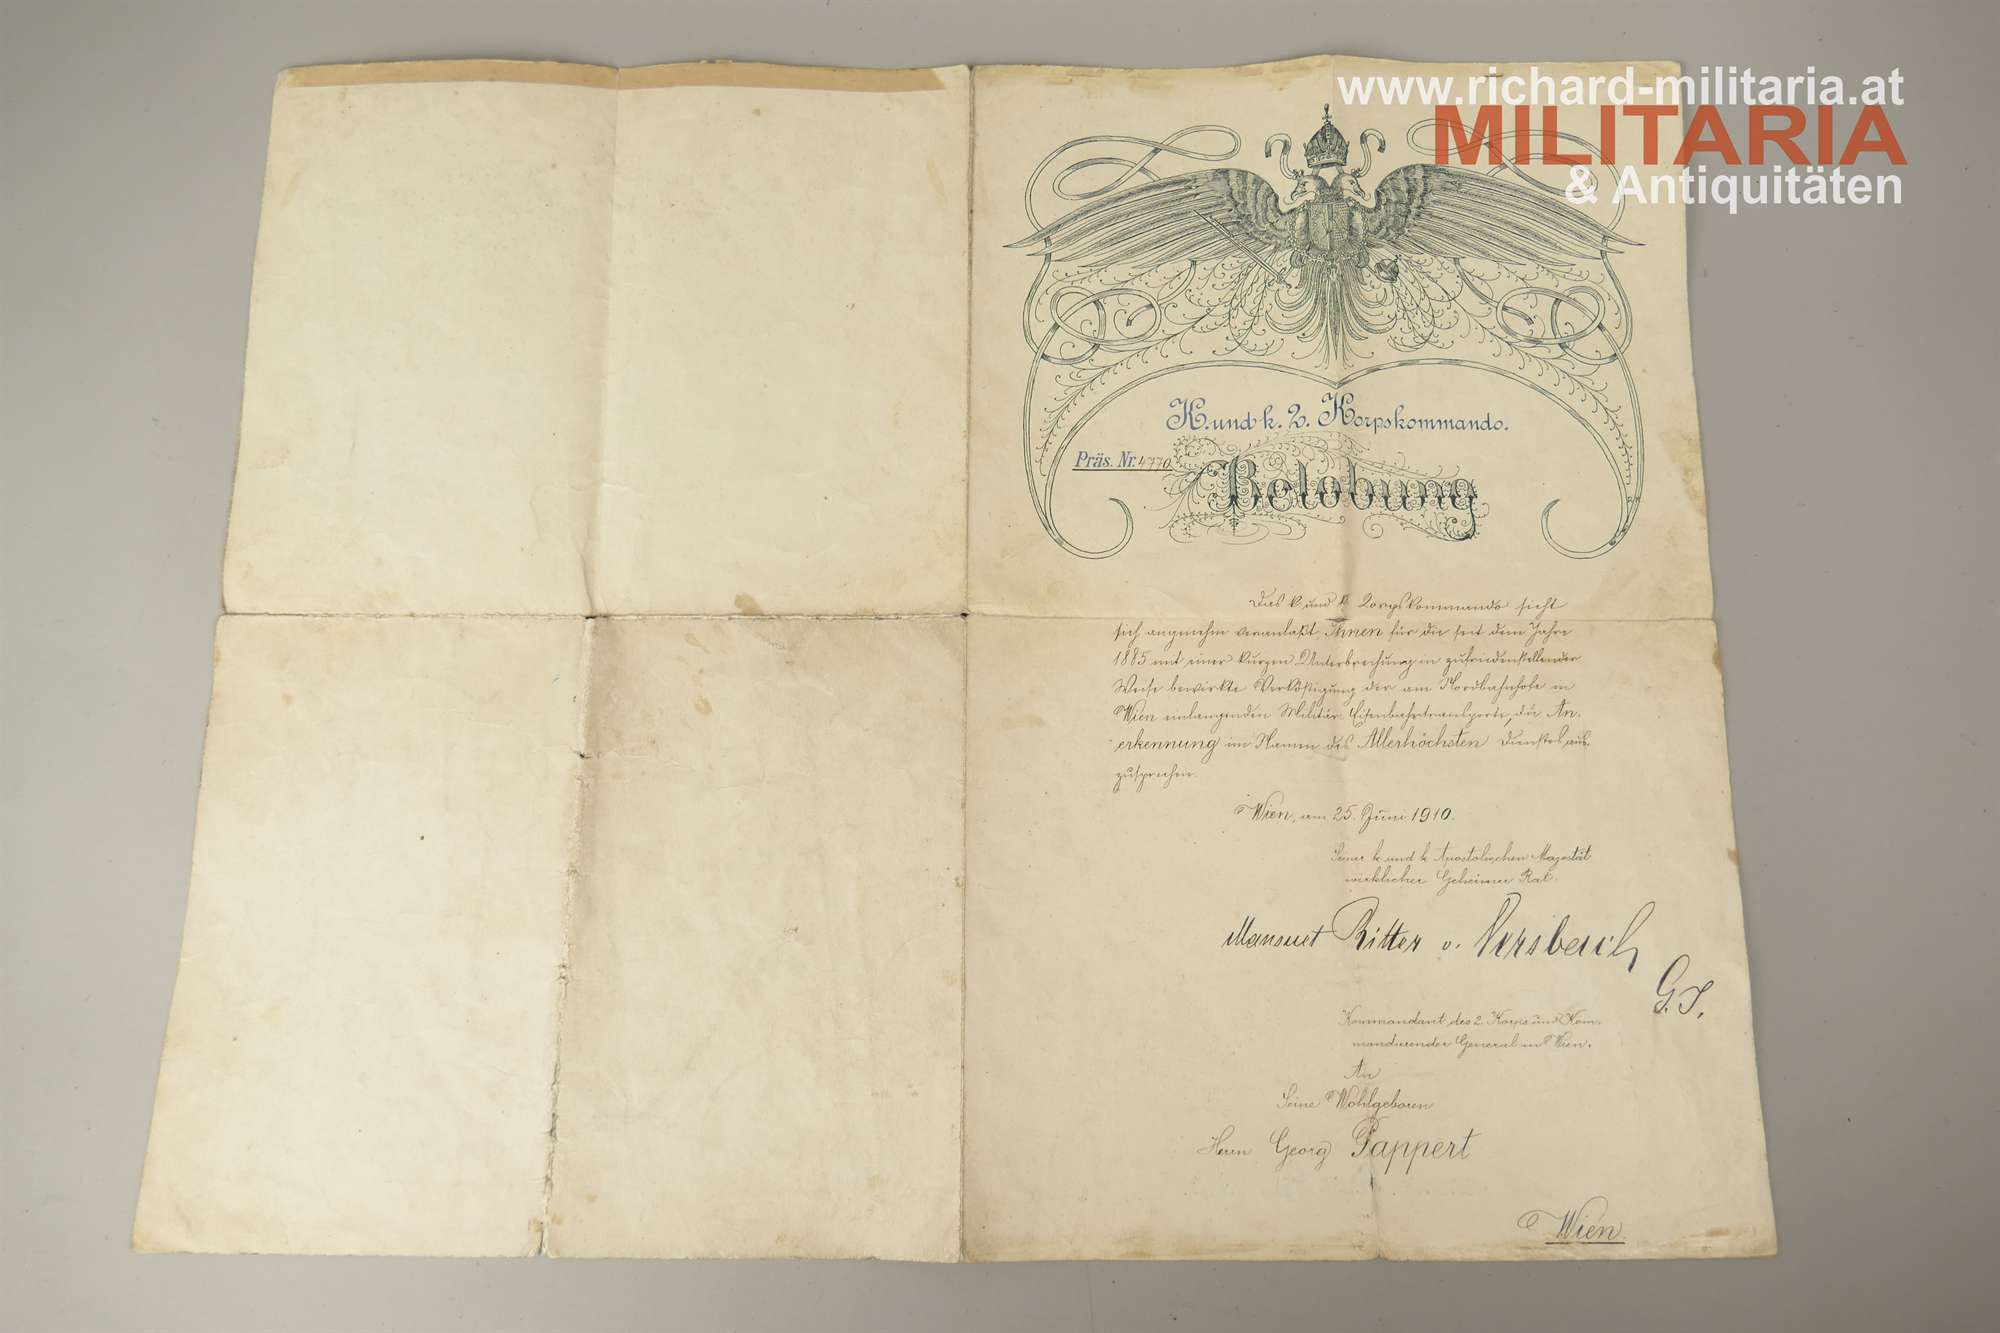 www.richard-militaria.at
MILITARIA
& Antiquitäten
K. und k. 2. Korpskommando.
Präs. Nr. 4770
Belobung
Das k. und k. Korpskommando sieht
sich angenehm veranlaßt, Ihnen für die seit dem Jahre
1885 mit einer kurzen Unterbrechung in zufriedenstellender
Weise bewirkte Verköstigung der am Nordbahnhofe in
Wien einlangenden Militär-Eisenbahntransporte, die An-
erkennung im Namen des Allerhöchsten Dienstes aus-
zusprechen.
Wien, am 25. Juni 1910.
Seiner k. und k. Apostolischen Majestät
wirklicher Geheimer Rat.
Mansuet Ritter v. Versbach
G.I.
Kommandant des 2. Korps und Kom-
mandierender General in Wien.
An
Seine Wohlgeboren
Herrn Georg Pappert
Wien.